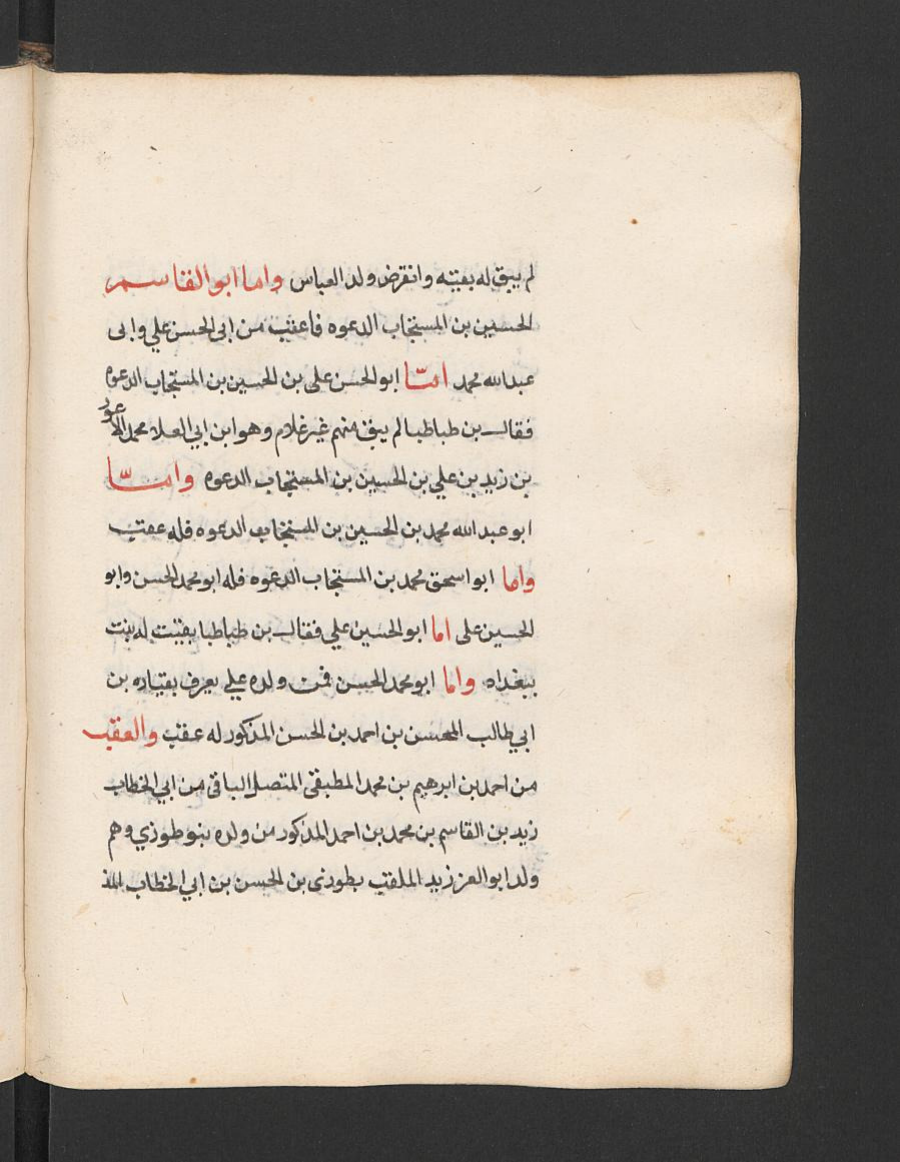 لم يبق له بقيته وانقرض ولد العباس واما ابو القاسم
الحسين بن المستجاب الدعوه فاعقب من ابى الحسن علي وابى
عبد الله محمد امّا ابو الحسن على بن الحسين بن المستجاب الدعوه
فقال بن طباطبا لم يبق منهم غير غلام وهو ابن ابي العلا محمد الاعور
بن زيد بن علي بن الحسين بن المستجاب الدعوه وامّا
ابو عبد الله محمد بن الحسين بن المستجاب الدعوه فله عقب
واما ابو اسحق محمد بن المستجاب الدعوه فله ابو محمد الحسن وابو
الحسين على اما ابو الحسين علي فقال بن طباطبا بقيت له بنت
ببغداد واما ابو محمد الحسن فمن ولده علي يعرف بقياده بن
ابي طالب المحسن بن احمد بن الحسن المذكور له عقب والعقب
من احمد بن ابرهيم بن محمد المطبقى المتصل الباقى من ابي الخطاب
زيد بن القاسم بن محمد بن احمد المذكور من ولده بنو طوزي وهم
ولد ابو العز زيد الملقب بطوزى بن الحسن بن ابي الخطاب المذ